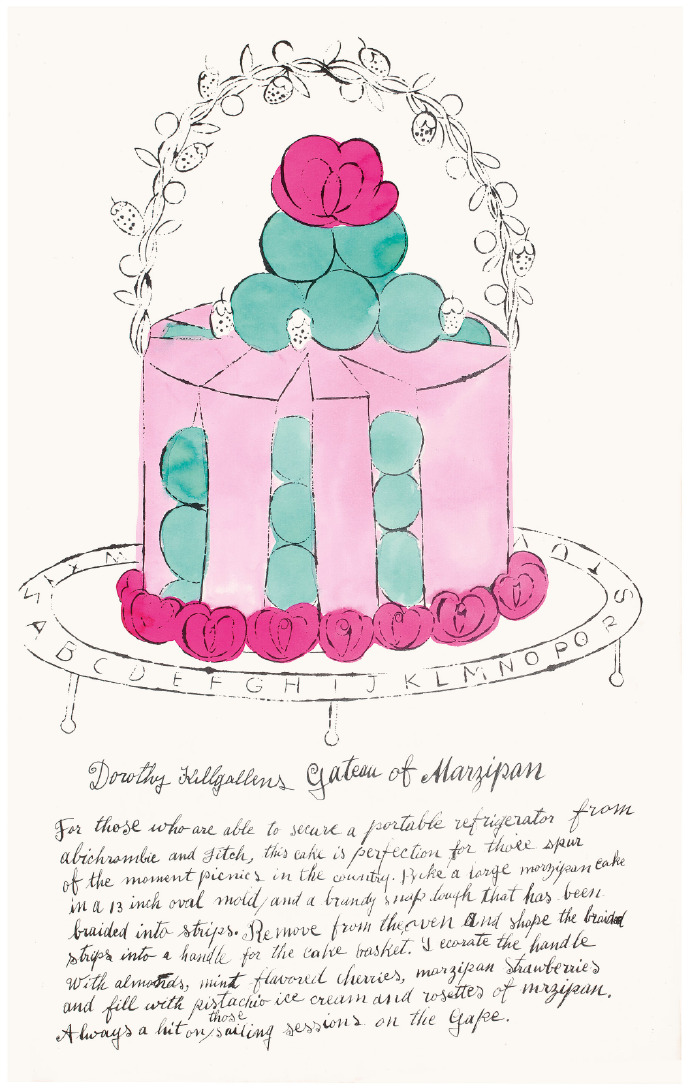 A B C D E F G H I J K L M N O P Q R S T U V W X Y Z
Dorothy Killgallens Gateau of Marzipan
For those who are able to secure a portable refrigerator from
abichrombie and Fitch, this cake is perfection for those spur
of the moment picnics in the country. Bake a large marzipan cake
in a 13 inch oval mold, and a brandy snap dough that has been
braided into strips. Remove from the oven and shape the braided
strips into a handle for the cake basket. Decorate the handle
with almonds, mint flavored cherries, marzipan strawberries
and fill with pistachio ice cream and rosettes of mrzipan.
Always a hit on those sailing sessions on the Gape.